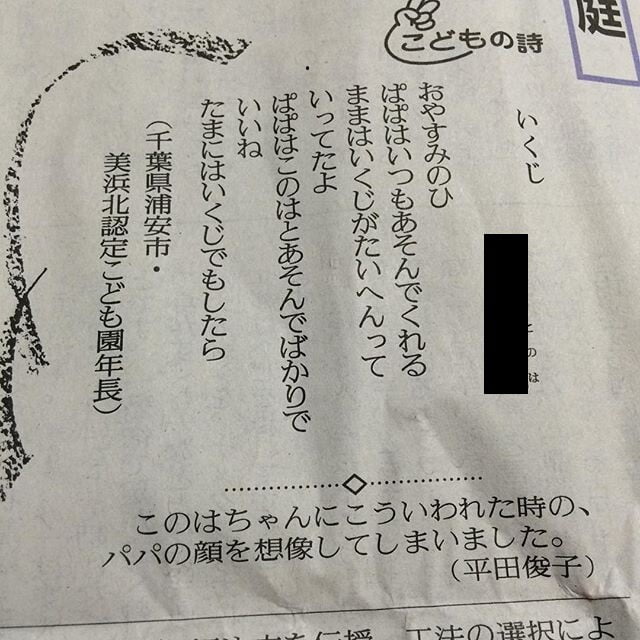 庭
こどもの詩
いくじ
このは
おやすみのひ
ぱぱはいつもあそんでくれる
ままはいくじがたいへんって
いってたよ
ぱぱはこのはとあそんでばかりで
いいね
たまにはいくじでもしたら
(千葉県浦安市・
美浜北認定こども園年長)
このはちゃんにこういわれた時の、
パパの顔を想像してしまいました。
(平田俊子)
工法の選択によ